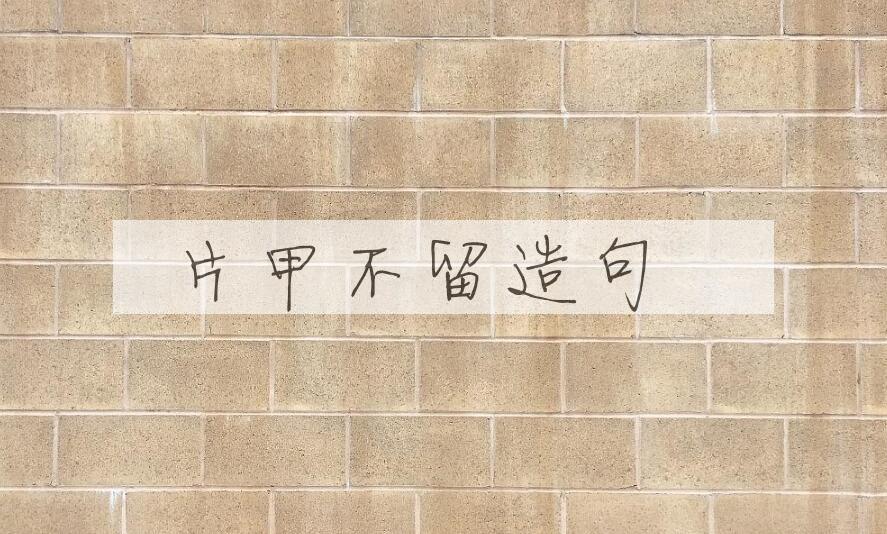 片甲不留造句